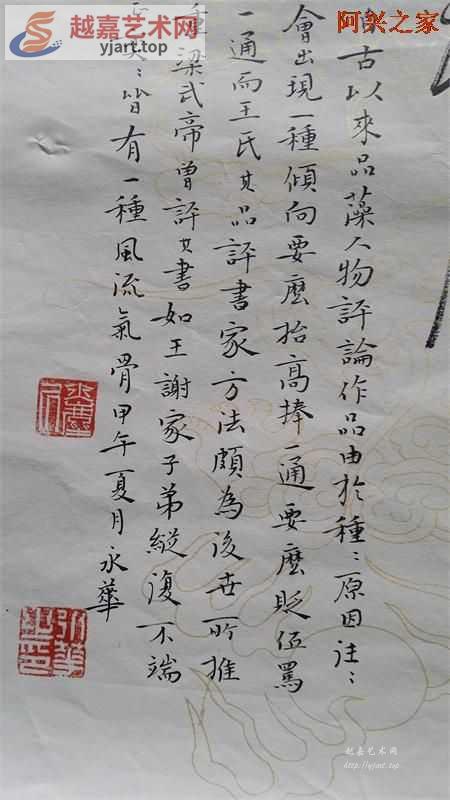 越嘉艺术网
yjart.top
阿兴之家
古以來品藻人物評論作品由於種〻原因往〻
會出現一種傾向要麼抬高捧一通要麼貶低罵
一通而王氏其品評書家方法頗為後世所推
重梁武帝曾評其書如王謝家子弟縱復不端
〻皆有一種風流氣骨甲午夏月永華
越嘉艺术网
http://yjart.top